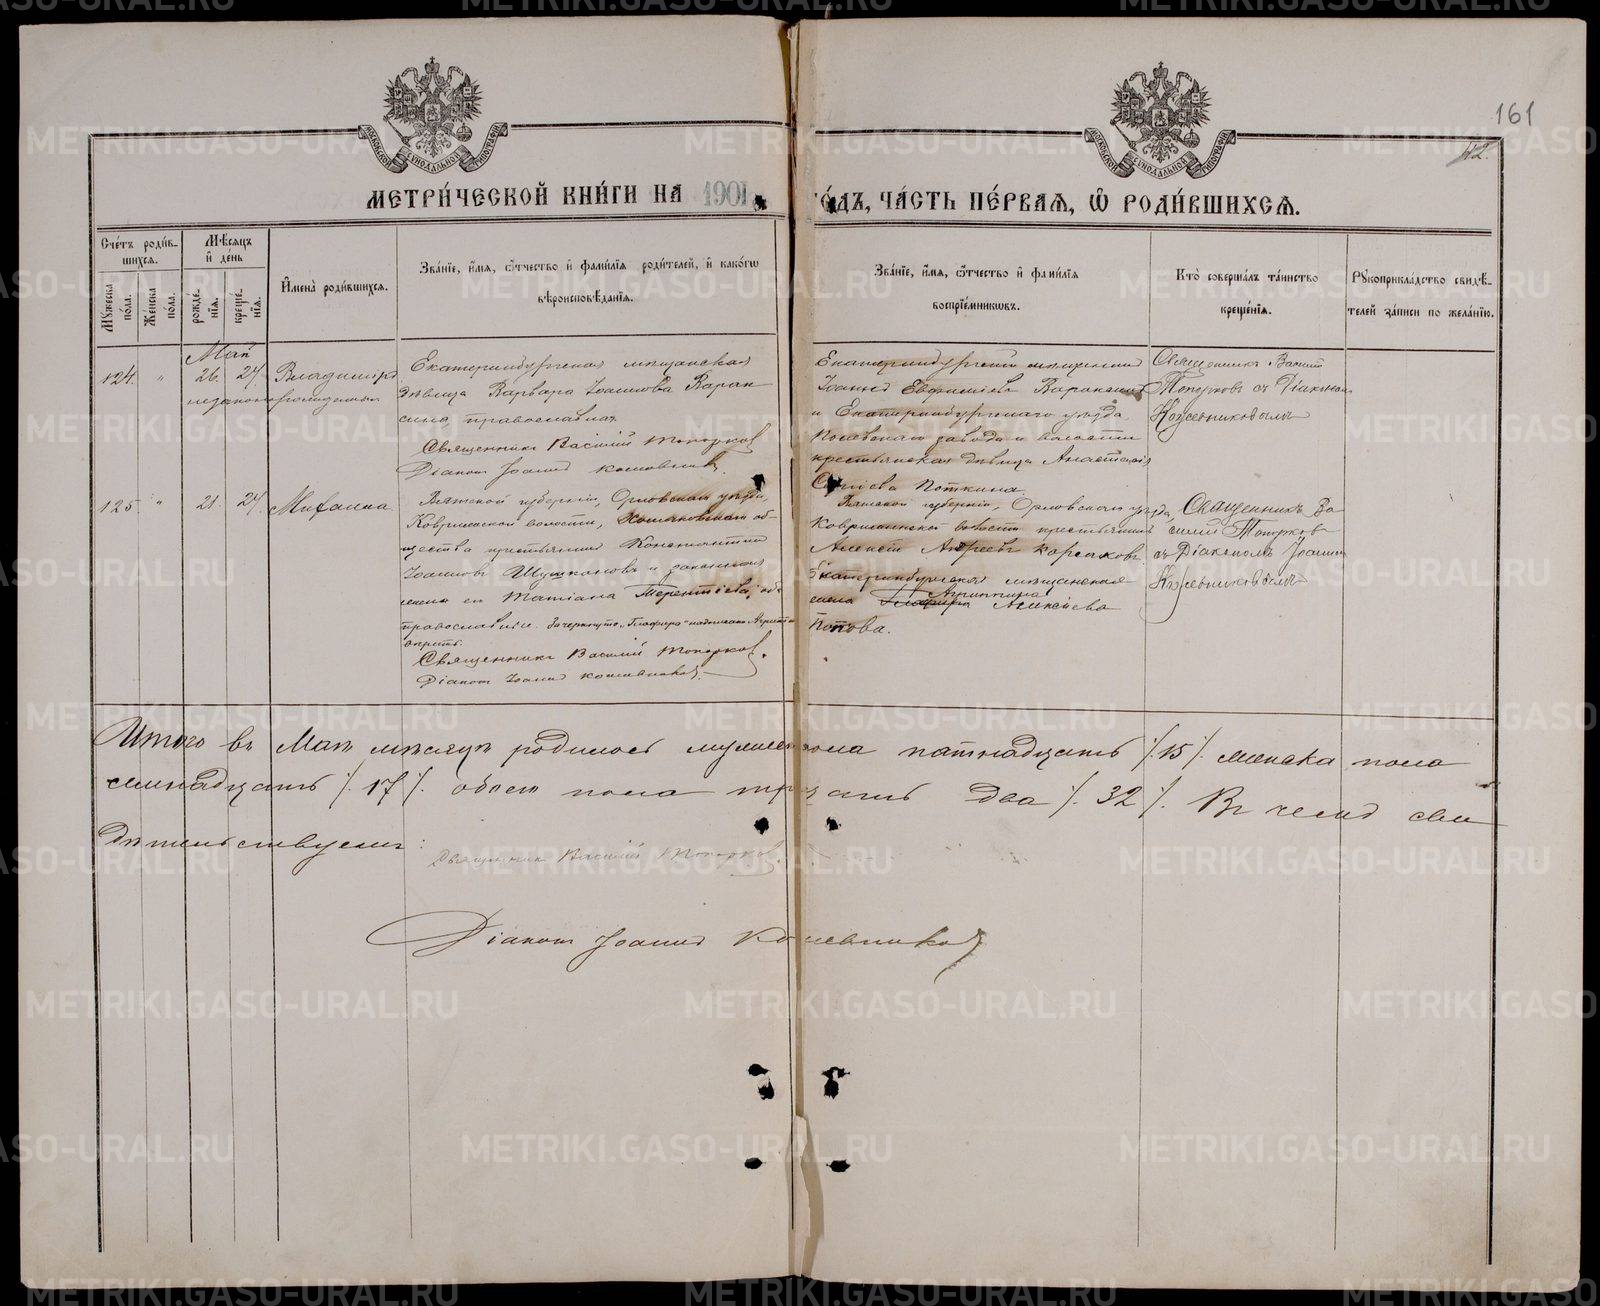 161
42.
МОСКОВСКОЙ СѴНОДАЛЬНОЙ ТИПОГРАФІИ
МОСКОВСКОЙ СѴНОДАЛЬНОЙ ТИПОГРАФІИ
МЕТРИ́ЧЕСКОЙ КНИ́ГИ НА 1901 ГО́ДЪ, ЧА́СТЬ ПЕ́РВАѦ, Ѿ РОДИ́ВШИХСѦ.
Сче́тъ роди́в-
шихсѧ.
Мꙋжеска по́ла.
Же́нска по́ла.
Мѣ́сѧцъ
и҆ де́нь
рожде́-
нїѧ.
креще́-
нїѧ.
И҆мена̀ роди́вшихсѧ.
Зва́нїе, и҆́мѧ, ѻ҆́тчество и҆ фами́лїѧ роди́телей, и҆ како́гѡ
вѣроисповѣ́данїѧ.
Зва́нїе, и҆́мѧ, ѻ҆́тчество и҆ фами́лїѧ
воспрїе́мникѡвъ.
Кто̀ соверша́лъ та́инство
креще́нїѧ.
Рꙋкоприкла́дство свидѣ́-
телей за́писи по жела́нїю.
Май
124. " 26. 27. Владиміръ
незаконнорожденный
Екатеринбургская мѣщанская
дѣвица Варвара Іоаннова Варак
сина, православная
Священникъ Василій Топорков
Діаконъ Іоаннъ Кожевников.
Екатеринбургскій мѣщанинъ
Іоаннъ Евфиміевъ Вараксинъ
и Екатеринбургскаго уѣзда
Полевскаго завода и волости
крестьянская дѣвица Анастасія
Сергіева Поткина
Священникъ Василій
Топорковъ съ Діакономъ
Кожевниковымъ
125. " 21. 27. Михаилъ
Вятской губерніи, Орловскаго уѣзда,
Ковригинской волости, об-
щества крестьянинъ Константинъ
Іоанновъ и законная
жена его Татіана Терентіева, оба
православные. Зачеркнуто „Глафира" надписано Агриппина
вѣрить.
Священникъ Василій Топорков.
Діаконъ Іоаннъ Кожевников.
Вятской губерніи, Орловскаго уѣзда,
Ковригинской волости крестьянинъ
Алексѣй Андреевъ Корсаковъ
Екатеринбургская мѣщанская
жена Глафира Агриппина Алексіева
Попова.
Священникъ Ва
силій Топорковъ
съ Діакономъ Іоанномъ
Кожевниковымъ
Итого въ Маѣ мѣсяцѣ родилось мужеска пола пятнадцать /.15/. женска пола
семнадцать /.17/. обоего пола тридцать два /.32/. Въ чемъ сви
дѣтельствуемъ:
Священникъ Василій Топорков.
Діаконъ Іоаннъ Кожевников
METRIKI.GASO-URAL.RU